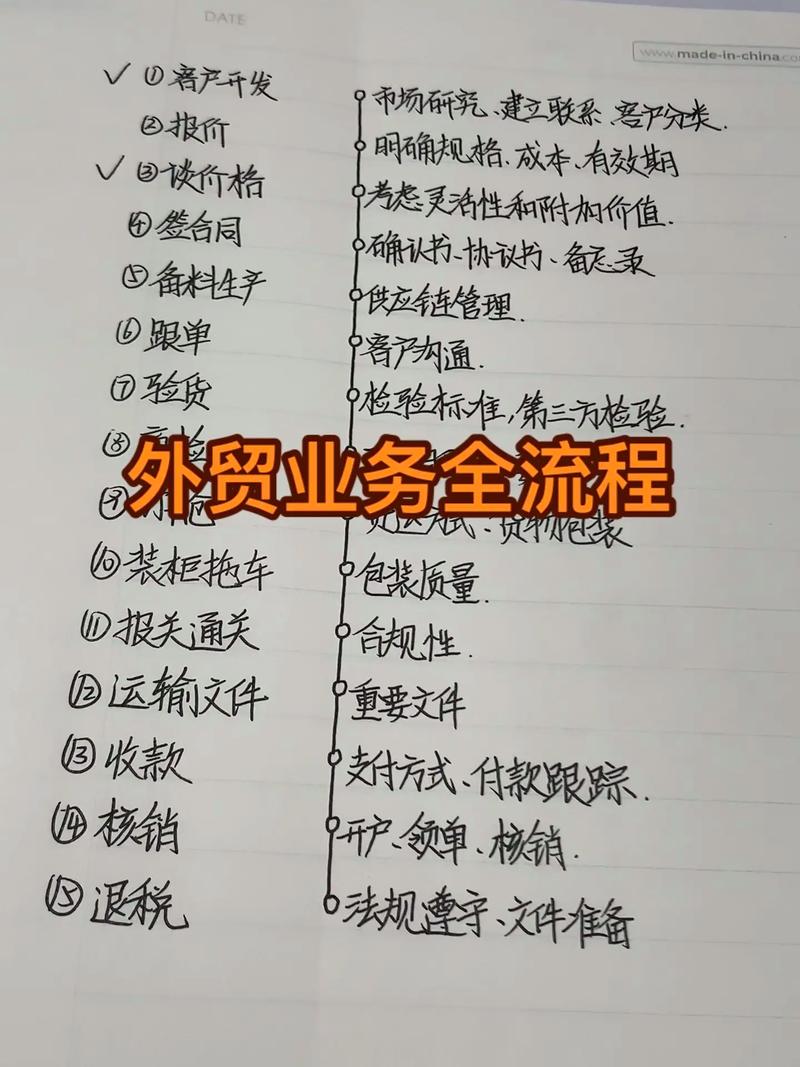 DATE
www.made-in-china.com
✓ ①客户开发
市场研究、建立联系、客户分类.
②报价
明确规格、成本、有效期
✓ ③谈价格
考虑灵活性和附加价值.
④签合同
确认书、协议书、备忘录
⑤备料生产
供应链管理.
⑥跟单
客户沟通.
⑦验货
检验标准,第三方检验.
⑧商检
外贸业务全流程
⑨
货运方式、货物包装
⑩装柜拖车
包装质量.
⑪报关通关
合规性.
⑫运输文件
重要文件
⑬收款
支付方式、付款跟踪.
⑭核销
开户、领单、核销.
⑮退税
法规遵守、文件准备